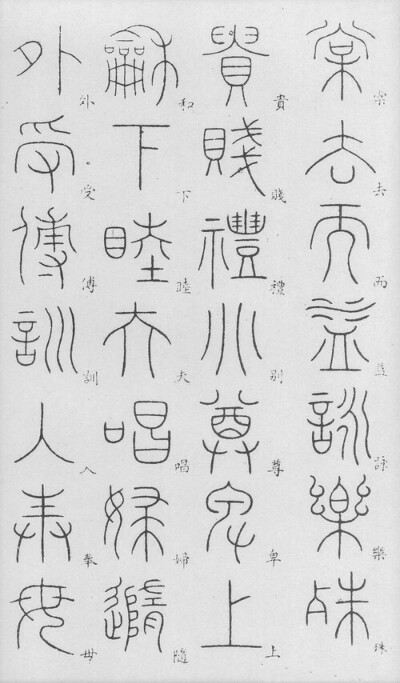 棠去而益詠樂殊
棠去而益詠樂殊
貴賤禮別尊卑上
貴賤禮別尊卑上
龢下睦夫唱婦隨
和下睦夫唱婦隨
外受傅訓入奉母
外受傅訓入奉母